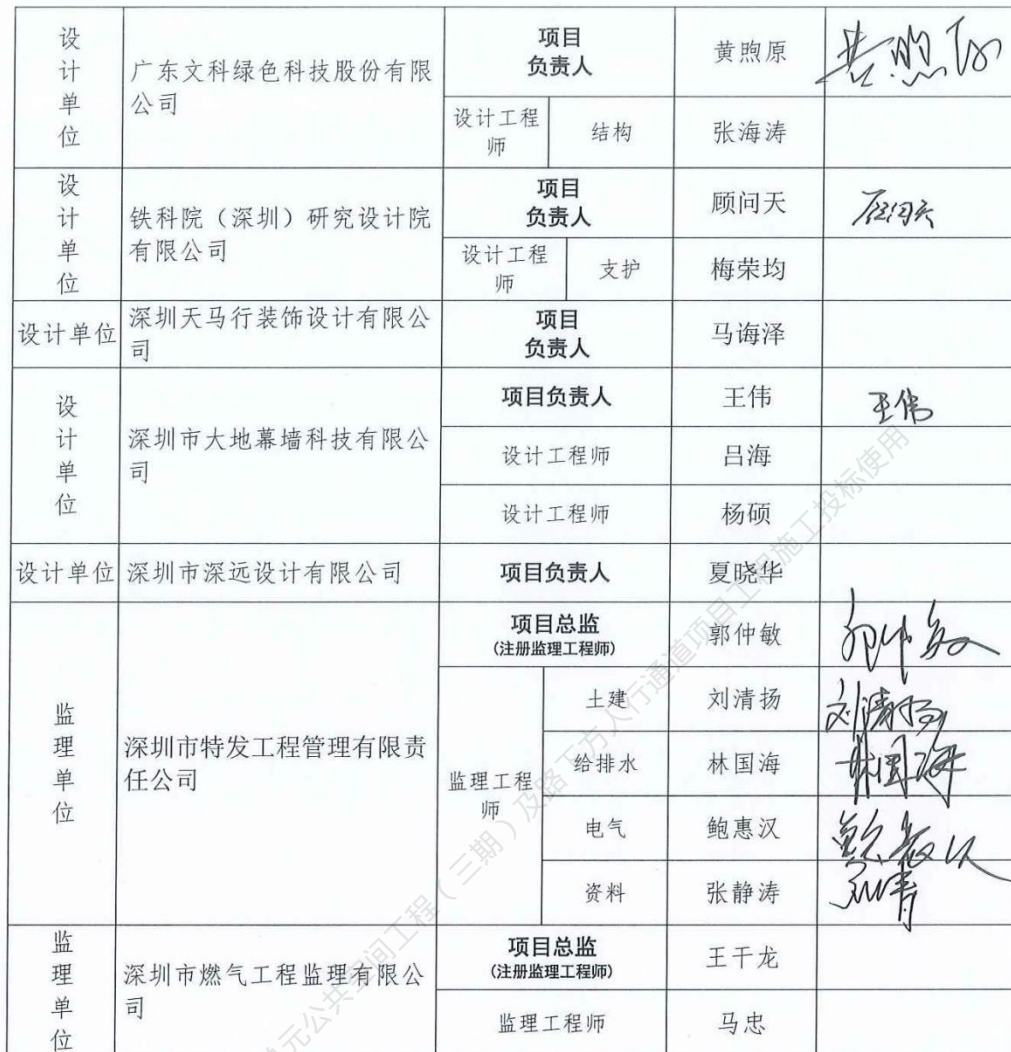 设
计
单
位
广东文科绿色科技股份有限
公司
项目
负责人
黄煦原
黄煦原
设计工程
师
结构
张海涛
设
计
单
位
铁科院（深圳）研究设计院
有限公司
项目
负责人
顾问天
顾问天
设计工程
师
支护
梅荣均
设计单位
深圳天马行装饰设计有限公
司
项目
负责人
马诲泽
设
计
单
位
深圳市大地幕墙科技有限公
司
项目负责人
王伟
王伟
设计工程师
吕海
设计工程师
杨硕
设计单位
深圳市深远设计有限公司
项目负责人
夏晓华
监
理
单
位
深圳市特发工程管理有限责
任公司
项目总监
(注册监理工程师)
郭仲敏
郭仲敏
监理工程
师
土建
刘清扬
刘清扬
给排水
林国海
林国海
电气
鲍惠汉
鲍惠汉
资料
张静涛
监
理
单
位
深圳市燃气工程监理有限公
司
项目总监
(注册监理工程师)
王干龙
监理工程师
马忠
元公共空间工程（三期）及路下方人行通道项目工程施工投标使用